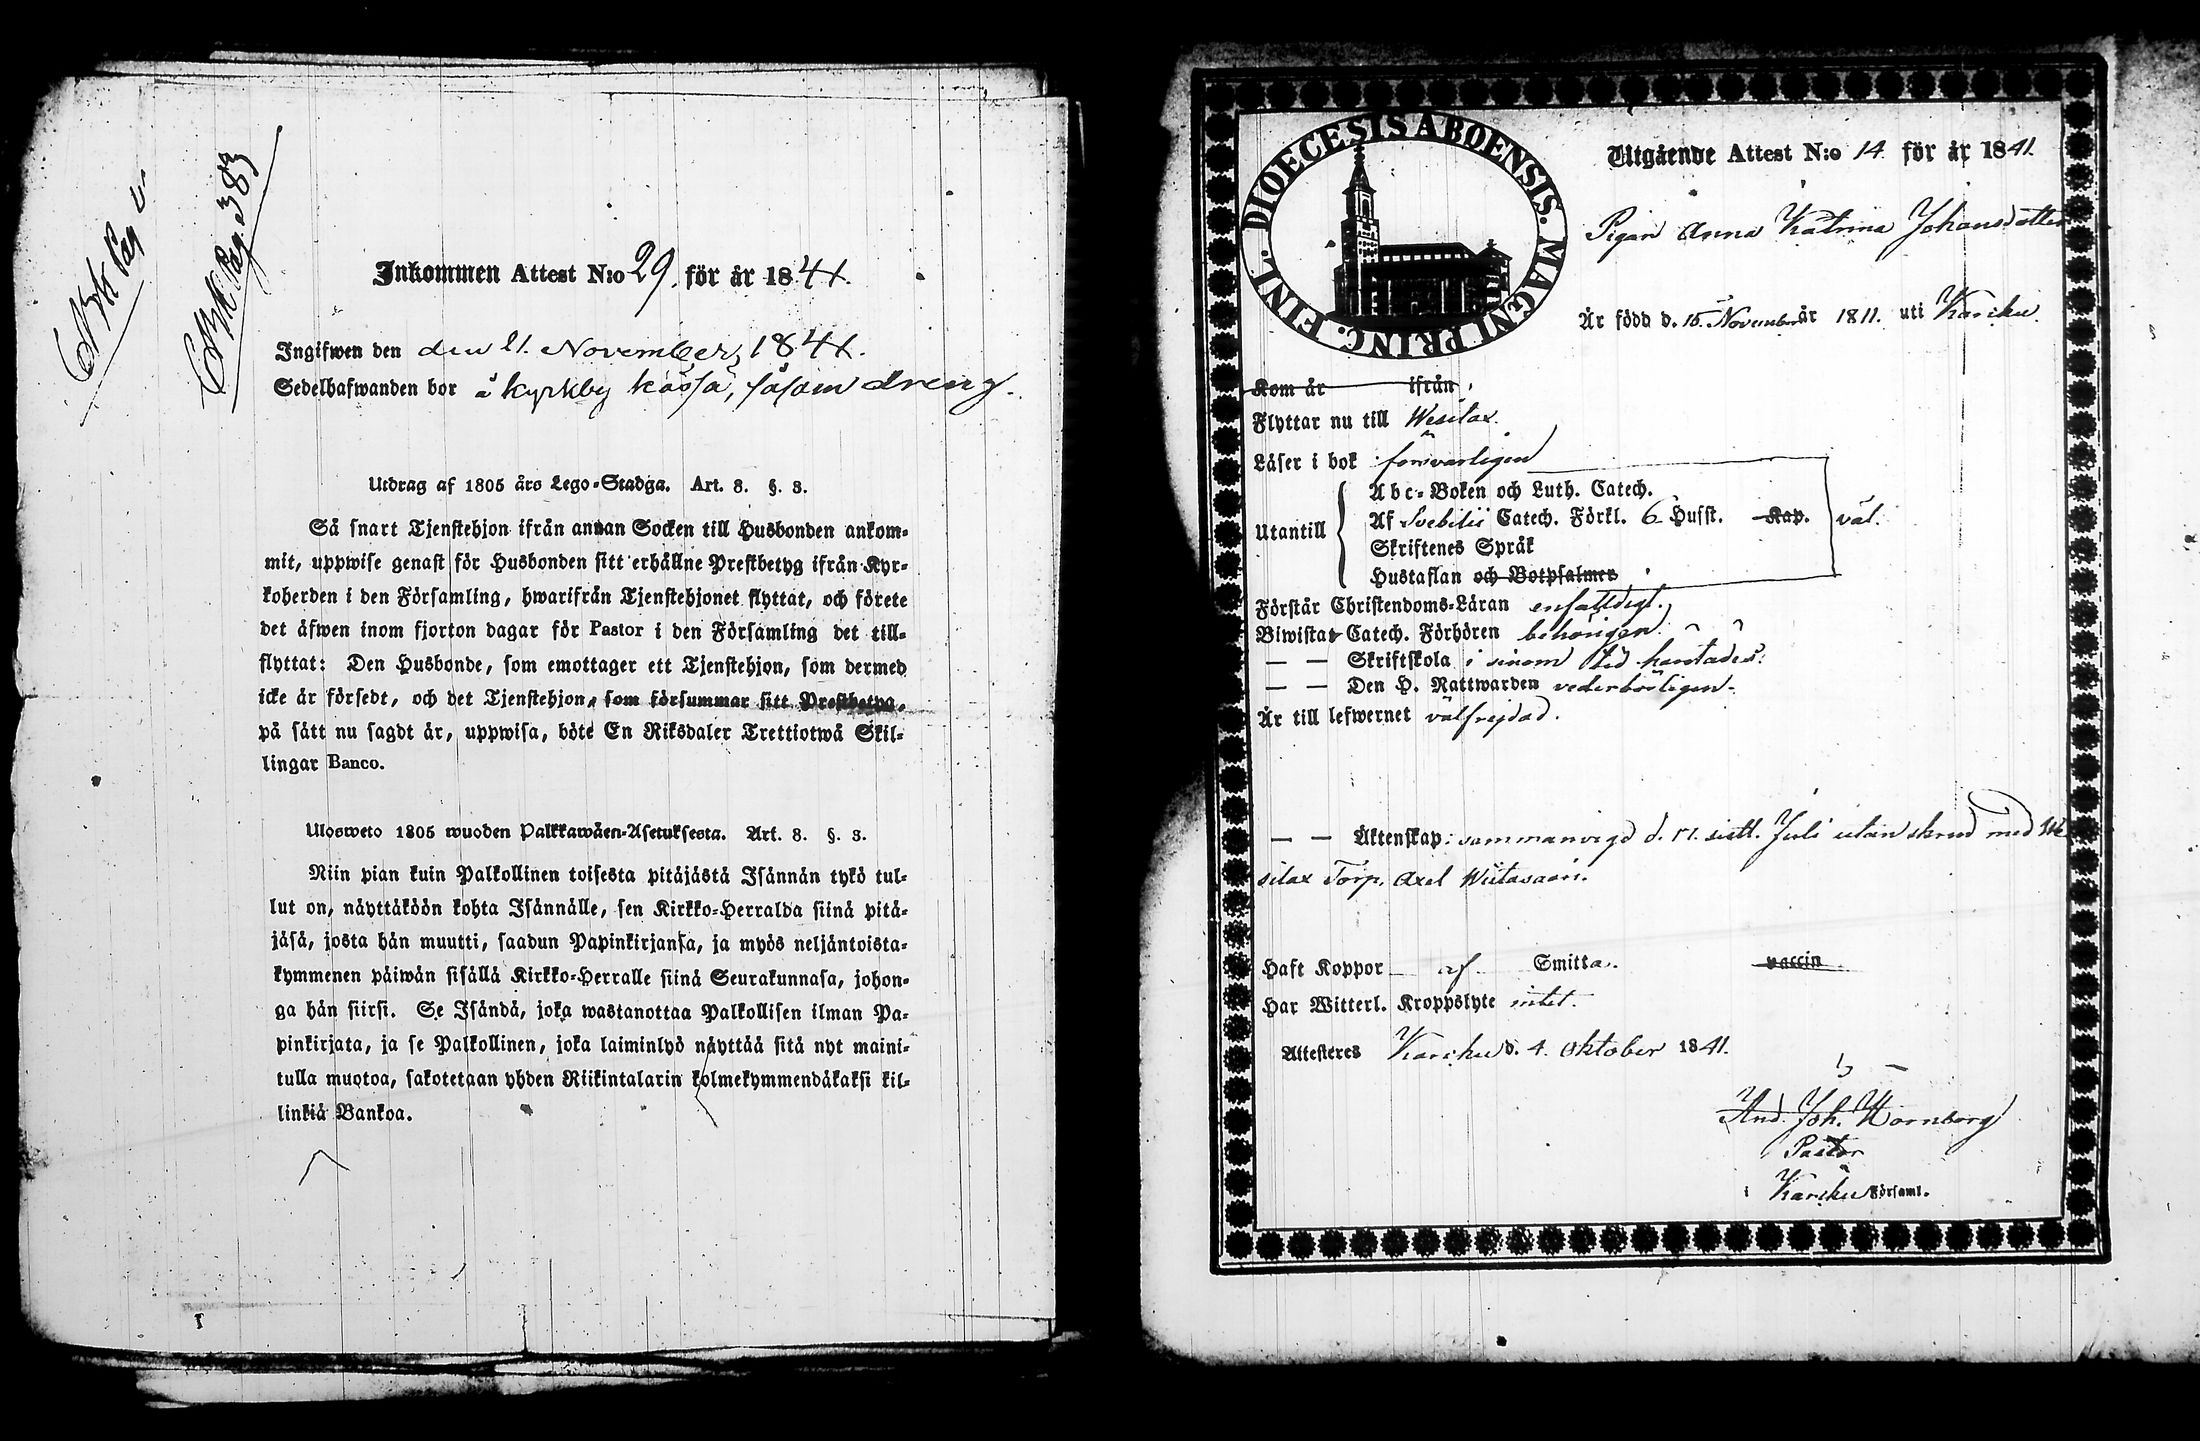 Pag
Pag 383
Inkommen Attest N:o 29. för år 1841.
Ingifwen den den 21. November 1841.
Sedelhafwanden bor å kyrkby kåssa, såsom dreng.
Utdrag af 1805 års Lego-Stadga. Art. 8. §. 3.
Så snart Tjenstehjon ifrån annan Socken till Husbonden ankom-
mit, uppwise genast för Husbonden sitt erhållne Prestbetyg ifrån Kyr-
koherden i den Församling, hwarifrån Tjenstehjonet flyttat, och förete
det äfwen inom fjorton dagar för Pastor i den Församling det till-
flyttat: Den Husbonde, som emottager ett Tjenstehjon, som dermed
icke är försedt, och det Tjenstehjon, som försummar sitt Prestbetyg,
på sätt nu sagdt är, uppwisa, böte En Riksdaler Trettiotwå Skil-
lingar Banco.
Ulosweto 1805 wuoden Palkkawäen-Asetuksesta. Art. 8. §. 3.
Niin pian kuin Palkollinen toisesta pitäjästä Isännän tykö tul-
lut on, näyttäköön kohta Isännälle, sen Kirkko-Herralda siinä pitä-
jäsä, josta hän muutti, saadun Papinkirjansa, ja myös neljäntoista-
kymmenen päiwän sisällä Kirkko-Herralle siinä Seurakunnasa, johon-
ga hän siirsi. Se Isändä, joka wastanottaa Palkollisen ilman Pa-
pinkirjata, ja se Palkollinen, joka laiminlyö näyttää sitä nyt maini-
tulla muotoa, sakotetaan yhden Riikintalarin kolmekymmendäkaksi kil-
linkiä Bankoa.
DIOECESIS ABOENSIS. MAGNI PRINC. FINL.
Utgående Attest N:o 14 för år 1841.
Pigan Anna Katrina Johansdotter
Är född d. 15 November år 1811. uti Karcku.
Kom år ifrån
Flyttar nu till Wesilax.
Läser i bok försvarligen
Abc-Boken och Luth. Catech.
Utantill Af Svebilii Catech. Förkl. 6 Husst. Kap. väl.
Skriftenes Språk
Hustaflan och Botpsalmer
Förstår Christendoms-Läran enfaldigt.
Biwistat Catech. Förhören behörigen.
— — Skriftskola i sinom tid
— — Den H. Nattwarden vederbörligen.
Är till lefwernet välfrejdad.
— — Äktenskap: sammanvigd d. 11. sistl. Juli utan skrud med We
silax Torp. Axel Wiitasaari.
Haft Koppor af Smitta. vaccin
Har Witterl. Kroppslyte intet.
Attesteres Karcku d. 4. Oktober 1841.
And. Joh. Wornborg
Pastor
i Karcku Församl.